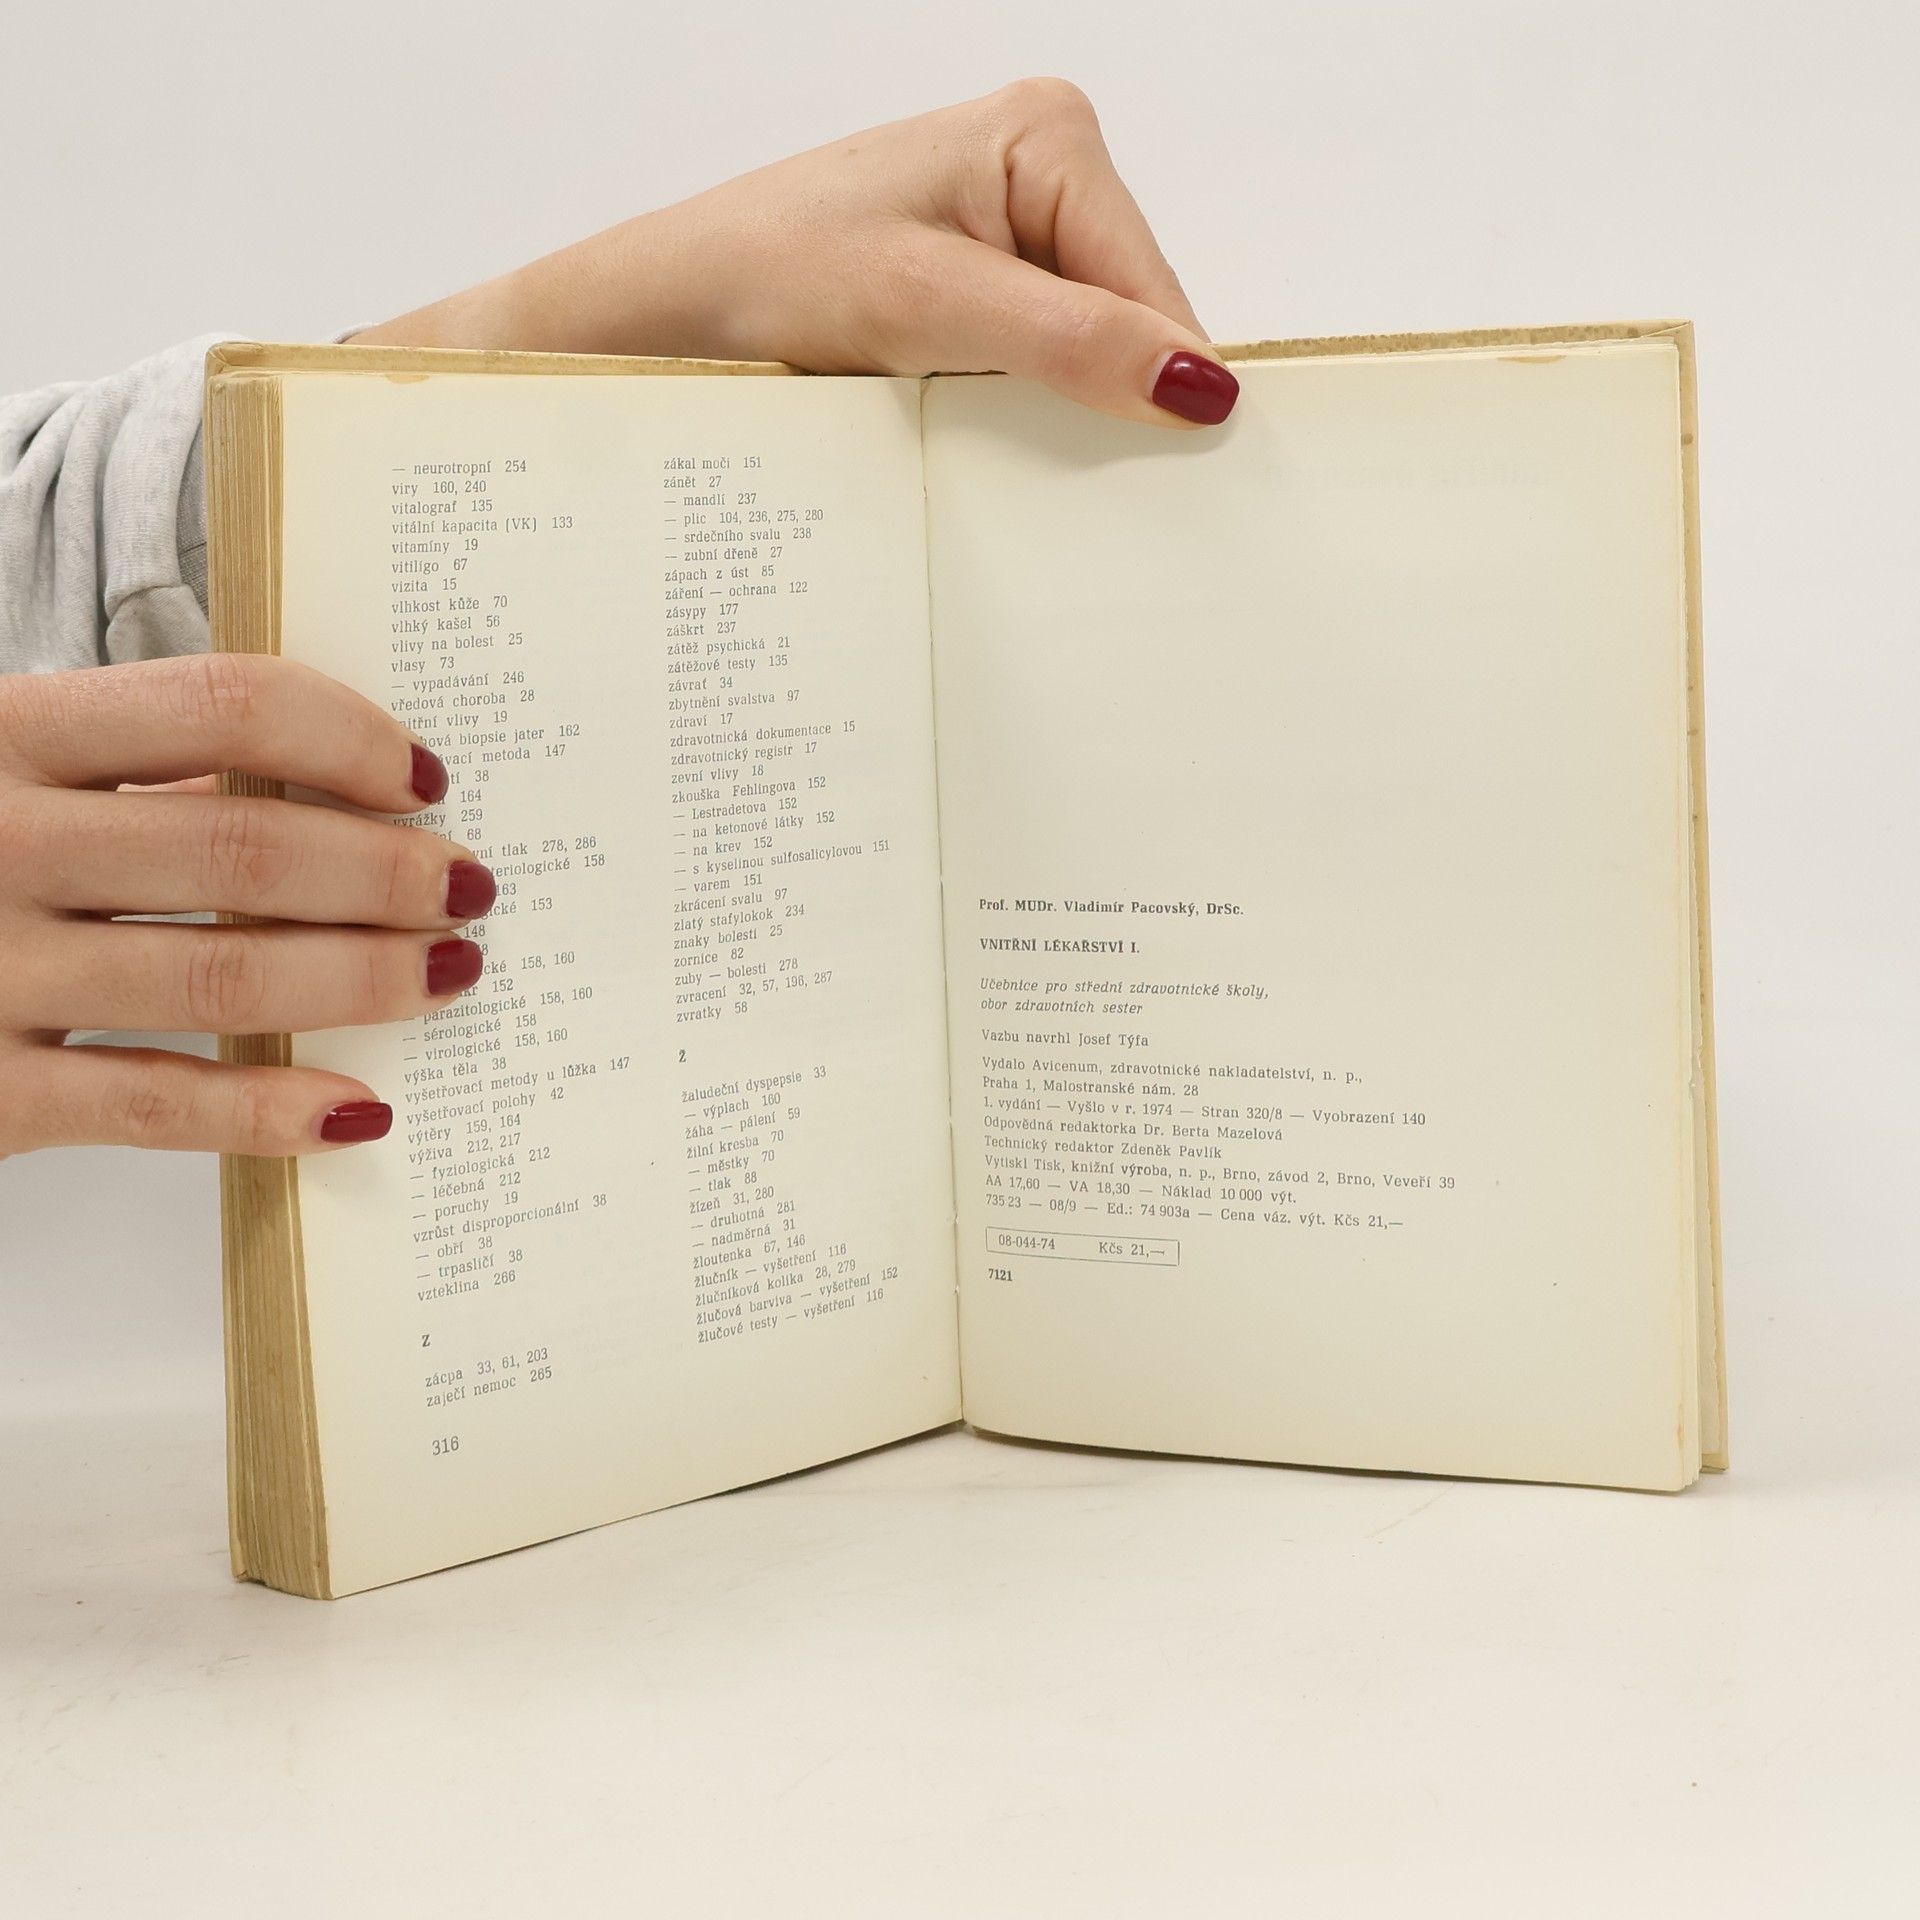 — neurotropní 254
viry 160, 240
vitalograf 135
vitální kapacita (VK) 133
vitamíny 19
vitiligo 67
vizita 15
vlhkost kůže 70
vlhký kašel 56
vlivy na bolest 25
vlasy 73
— vypadávání 246
vředová choroba 28
vlivy 19
biopsie jater 162
metoda 147
38
164
vyrážky 259
68
tlak 278, 286
158
163
153
148
158, 160
152
— parazitologické 158, 160
— sérologické 158
— virologické 158, 160
výška těla 38
vyšetřovací metody u lůžka 147
vyšetřovací polohy 42
výtěry 159, 164
výživa 212, 217
— fyziologická 212
— léčebná 212
— poruchy 19
vzrůst disproporcionální 38
— obří 38
— trpasličí 38
vzteklina 266
Z
zácpa 33, 61, 203
zaječí nemoc 265
316
zákal moči 151
zánět 27
— mandlí 237
— plic 104, 236, 275, 280
— srdečního svalu 238
— zubní dřeně 27
zápach z úst 85
záření — ochrana 122
zásypy 177
záškrt 237
zátěž psychická 21
zátěžové testy 135
závrať 34
zbytnění svalstva 97
zdraví 17
zdravotnická dokumentace 15
zdravotnický registr 17
zevní vlivy 18
zkouška Fehlingova 152
— Lestradetova 152
— na ketonové látky 152
— na krev 152
— s kyselinou sulfosalicylovou 151
— varem 151
zkrácení svalu 97
zlatý stafylokok 234
znaky bolesti 25
zornice 82
zuby — bolesti 278
zvracení 32, 57, 196, 287
zvratky 58
Ž
žaludeční dyspepsie 33
— výplach 160
žáha — pálení 59
žilní kresba 70
— městky 70
— tlak 88
žízeň 31, 280
— druhotná 281
— nadměrná 31
žloutenka 67, 146
žlučník — vyšetření 116
žlučníková kolika 28, 279
žlučová barviva — vyšetření 152
žlučové testy — vyšetření 116
Prof. MUDr. Vladimír Pacovský, DrSc.
VNITŘNÍ LÉKAŘSTVÍ I.
Učebnice pro střední zdravotnické školy,
obor zdravotních sester
Vazbu navrhl Josef Týfa
Vydalo Avicenum, zdravotnické nakladatelství, n. p.,
Praha 1, Malostranské nám. 28
1. vydání — Vyšlo v r. 1974 — Stran 320/8 — Vyobrazení 140
Odpovědná redaktorka Dr. Berta Mazelová
Technický redaktor Zdeněk Pavlík
Vytiskl Tisk, knižní výroba, n. p., Brno, závod 2, Brno, Veveří 39
AA 17,60 — VA 18,30 — Náklad 10 000 výt.
735 23 — 08/9 — Ed.: 74 903a — Cena váz. výt. Kčs 21,—
08-044-74 Kčs 21,—
7121